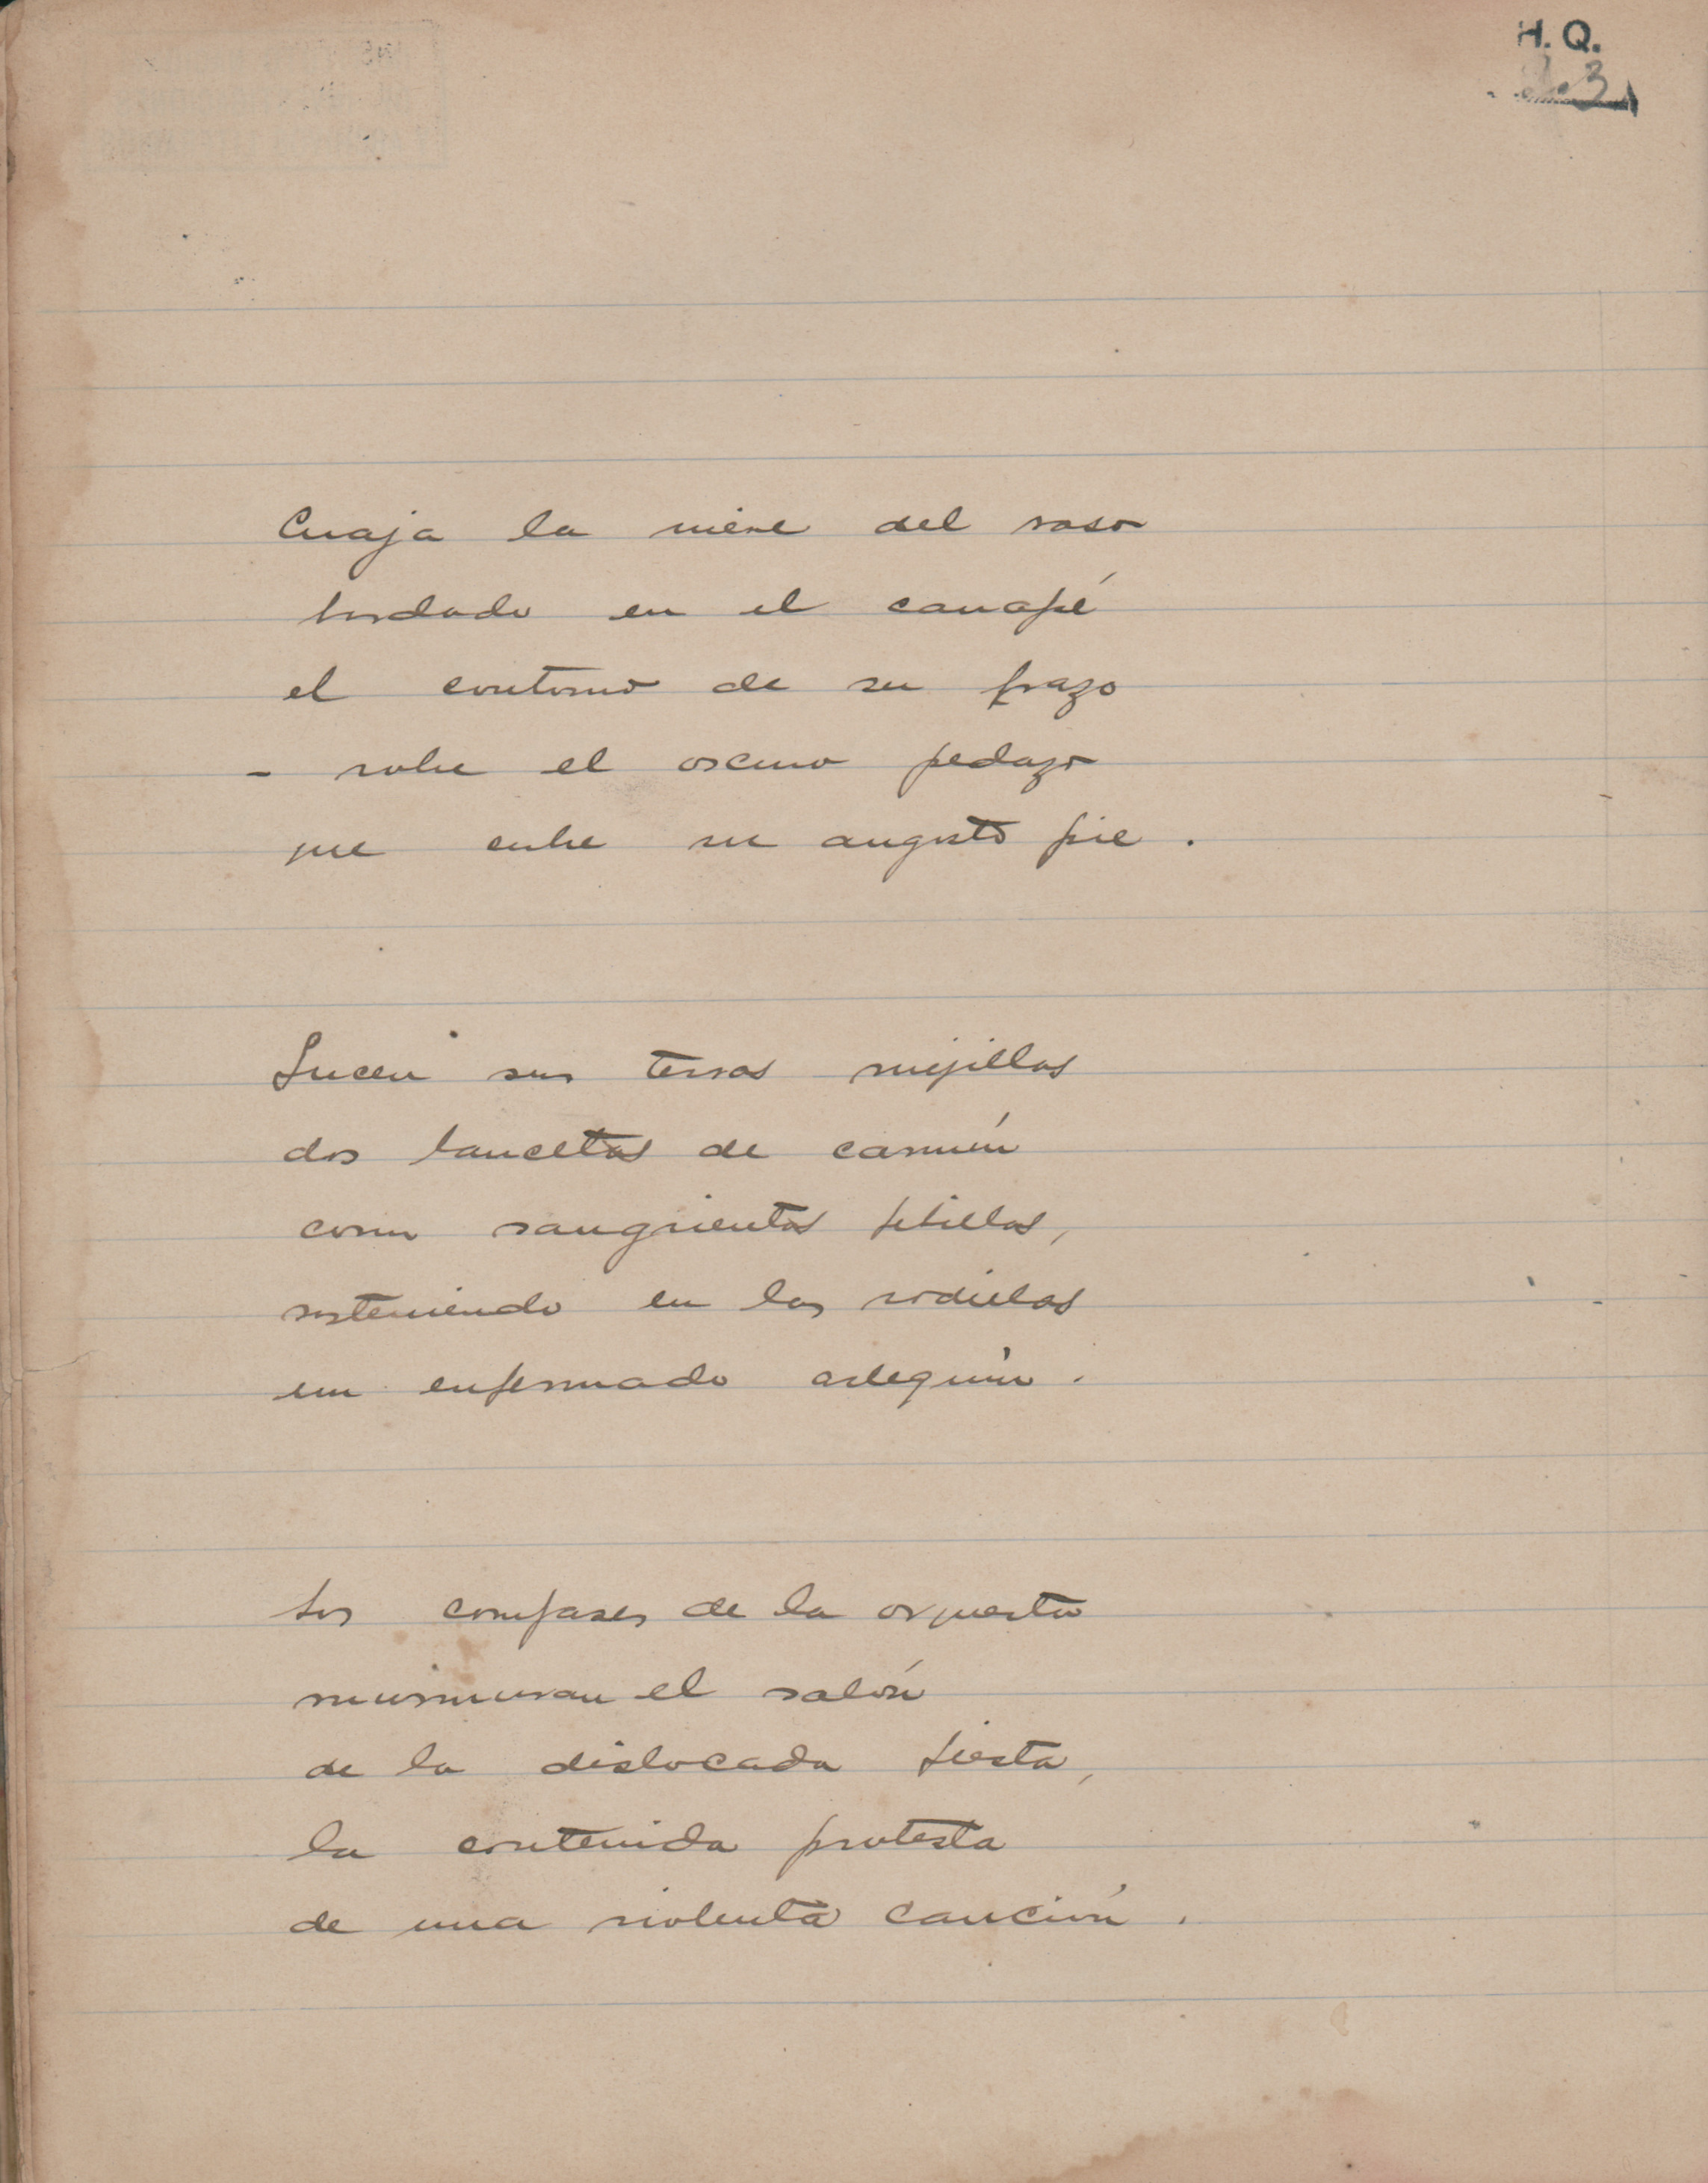 H. Q.
3
Cuaja la nieve del raso
bordado en el canapé
el contorno de su brazo
- sobre el oscuro pedazo
que cubre su angosto pie.
Lucen sus tersas mejillas
dos lancetas de carmín
como sangrientas hebillas,
sosteniendo en las rodillas
un enfermado arlequín.
Los compases de la orquesta
murmuran el salón
de la dislocada fiesta,
la contenida protesta
de una violenta canción.